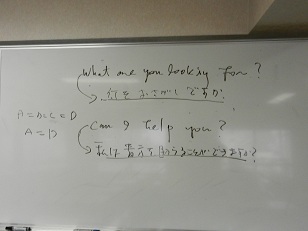 What are you looking for?
何をおさがしですか
A=B=C=D
A=D
Can I help you?
私は あなたを ことができますか?